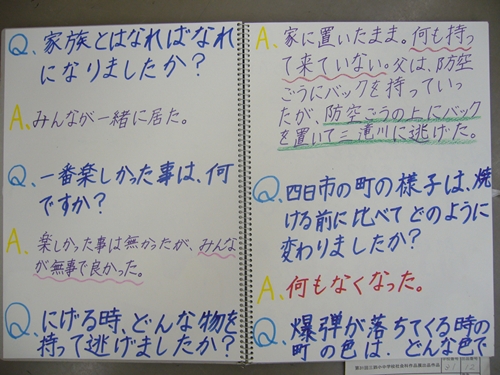 Q、家族とはなればなれ
になりましたか？
A、みんなが一緒に居た。
Q、一番楽しかった事は、何
ですか？
A、楽しかった事は無かったが、みんな
が無事で良かった。
Q、にげる時、どんな物を
持って逃げましたか？
A、家に置いたまま。何も持っ
て来ていない。父は、防空
ごうにバックを持っていっ
たが、防空ごうの上にバック
を置いて三滝川に逃げた。
Q、四日市の町の様子は、焼
ける前に比べてどのように
変わりましたか？
A、何もなくなった。
Q、爆弾が落ちてくる時の
町の色は、どんな色で